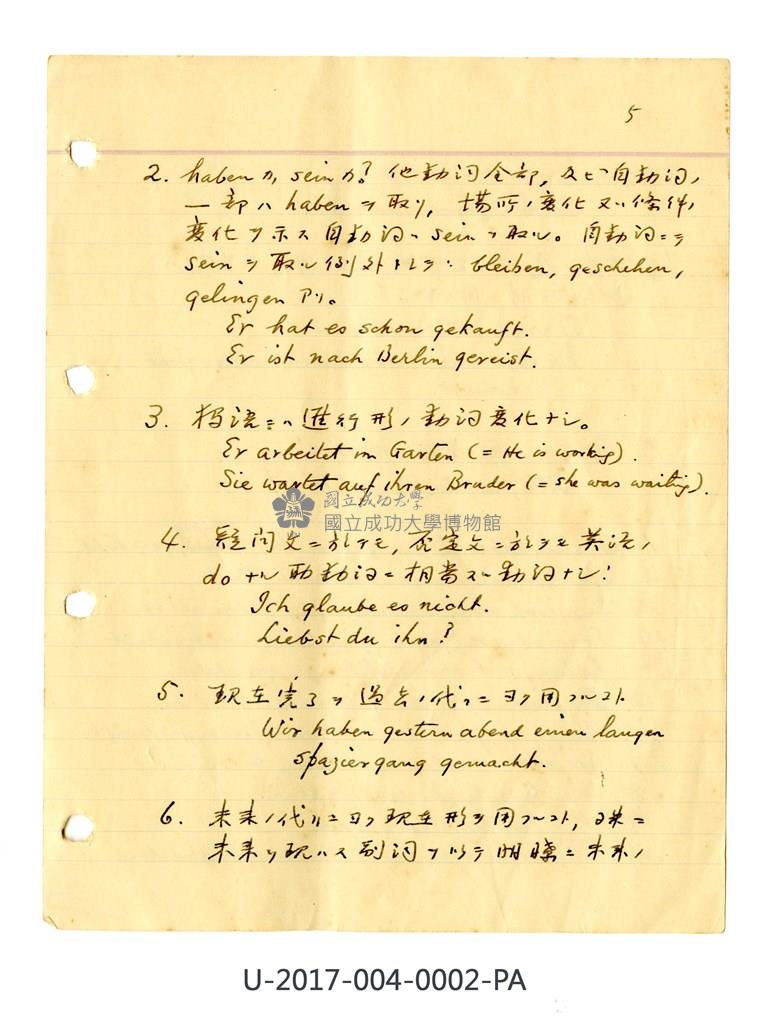 5
2. haben カ, sein カ? 他動詞全部, 及ビ自動詞ノ
一部ハ haben ヲ取リ, 場所ノ変化又ハ條件ノ
変化ヲ示ス自動詞ハ sein ヲ取ル。自動詞ニテ
sein ヲ取ル例外トシテハ bleiben, geschehen,
gelingen アリ。
Er hat es schon gekauft.
Er ist nach Berlin gereist.
3. 独语ニハ進行形ノ動詞変化ナシ。
Er arbeitet im Garten (= He is working).
Sie wartet auf ihren Bruder (= she was waiting).
國立成功大學
國立成功大學博物館
4. 疑问文ニ於テモ, 否定文ニ於テモ英语ノ
do ナル助動詞ニ相当スル動詞ナシ:
Ich glaube es nicht.
Liebst du ihn?
5. 現在完了ヲ過去ノ代リニヨク用フルコト
Wir haben gestern abend einen langen
Spaziergang gemacht.
6. 未来ノ代リニヨク現在形ヲ用フルコト, 殊ニ
未来ヲ現ハス副詞ヲ以テ明瞭ニ未来ノ
U-2017-004-0002-PA